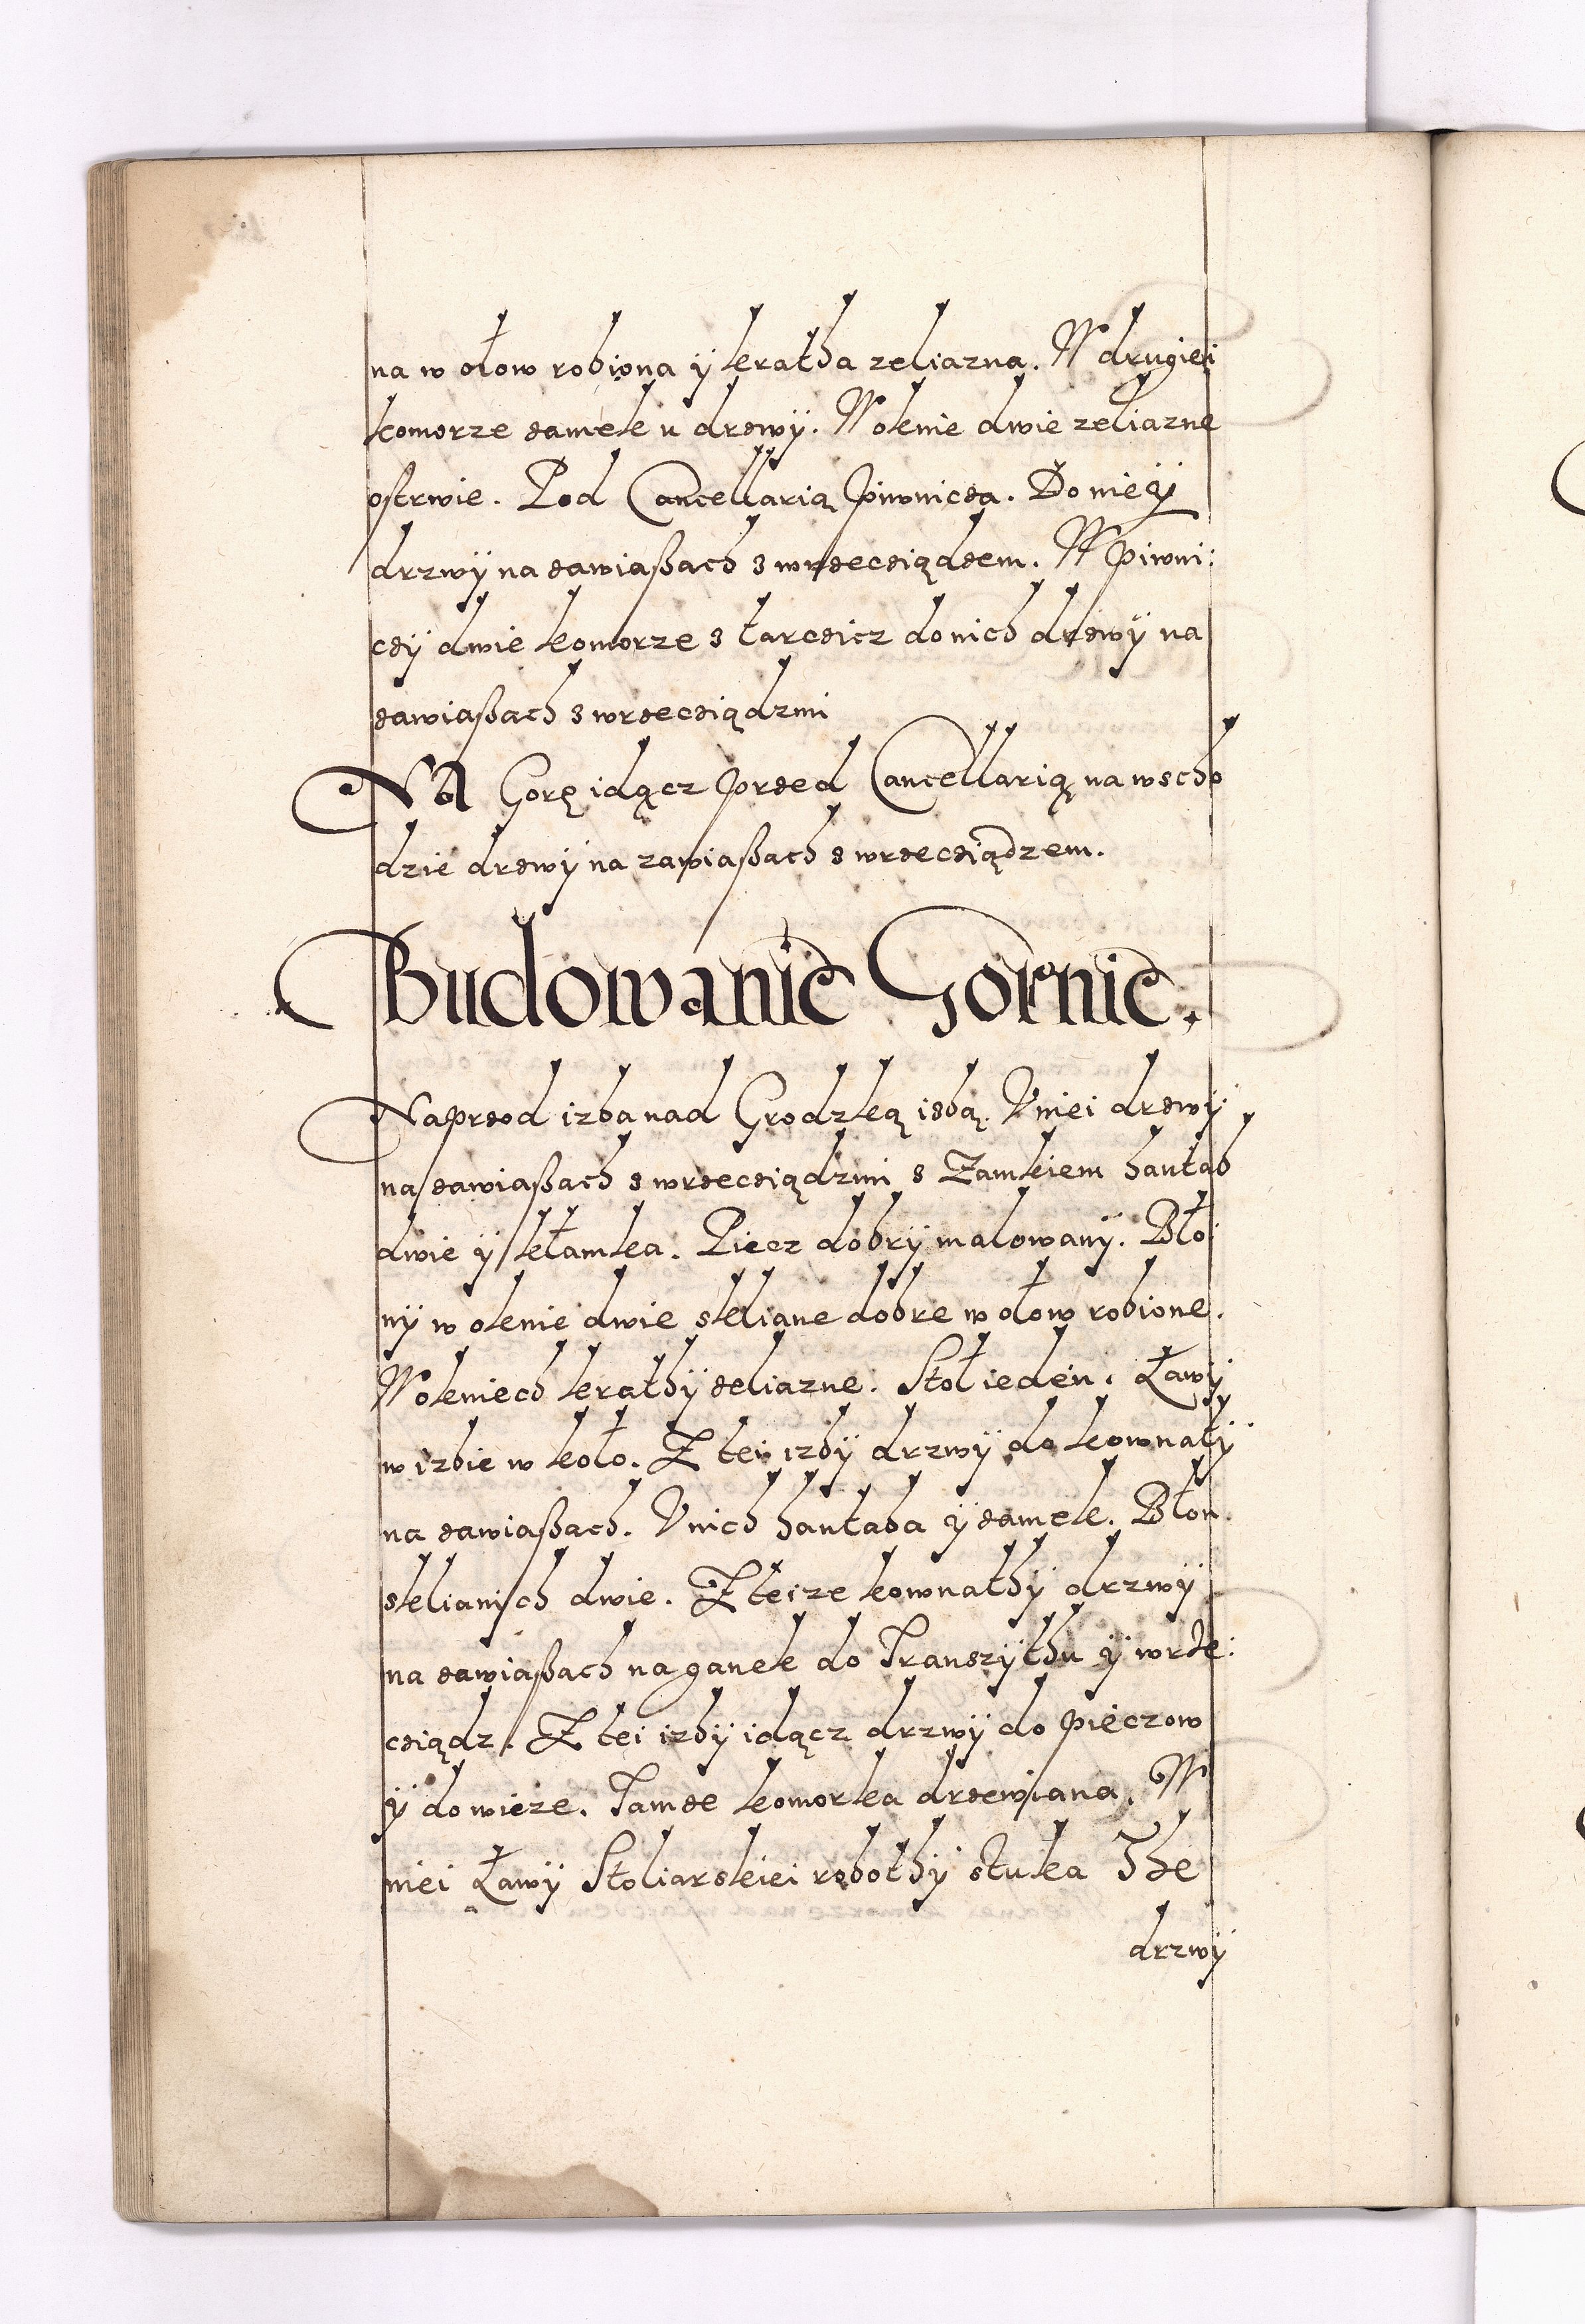 na w ołow robiona ÿ kratha zeliazna. W drugiei
komorze zamek u drzwÿ. W oknie dwie zeliazne
ostrwie. Pod Cancellarią piwnicza. Do nieÿ
drzwÿ na zawiaßach z wrzecziądzem. W piwni:
czÿ dwie komorze z tarczicz do nich drzwÿ na
zawiaßach z wrzecziądzmi
NA Gorę idącz przed Cancellarią na wscho
dzie drzwÿ na zawiaßach z wrzecziądzem.
Budowanie Gornie.
Naprzod izba nad Grodzką izbą. V niei drzwÿ
na zawiaßach z wrzecziądzmi z Zamkiem hantab
dwie ÿ kłamka. Piecz dobrÿ malowanÿ. Bło:
nÿ w oknie dwie skliane dobre w ołow robione.
W okniech krathÿ zeliazne. Stoł ieden. Ławÿ
w izbie w koło. Z tei izbÿ drzwÿ do kownatÿ
na zawiaßach. V nich hantaba ÿ zamek. Błon
sklianich dwie. Z teize kownathÿ drzwÿ
na zawiaßach na ganek do Transzÿthu ÿ wrze:
cziądz. Z tei izbÿ idącz drzwÿ do pieczow
ÿ do wieze. Tamze komorka drzewiana. W
niei Ławÿ Stoliarskiei robothÿ stuka The
drzwÿ